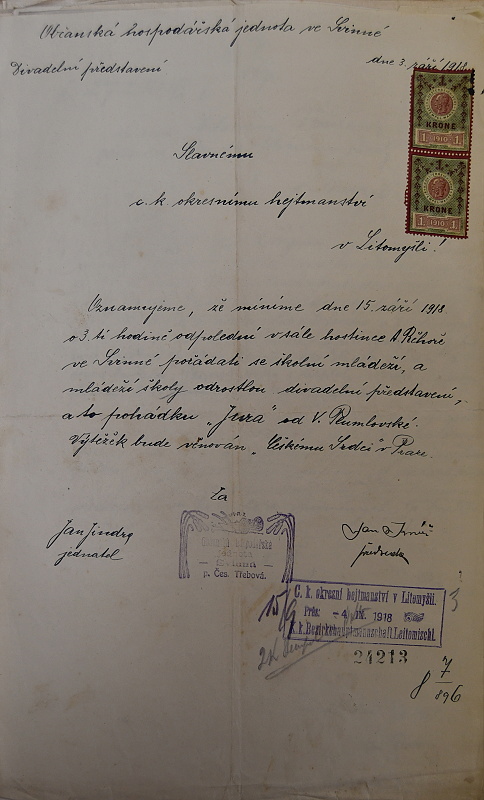 Občanská hospodářská jednota ve Svinné
dne 3. září 1918
Divadelní představení
1
KRONE
1. 1910 1.
1
KRONE
1. 1910 1.
Slavnému
c. k. okresnímu hejtmanství
v Litomyšli!
Oznamujeme, že míníme dne 15. září 1918
o 3. tí hodině odpolední v sále hostince A. Řehoře
ve Svinné pořádati se školní mládeží, a
mládeží školy odrostlou divadelní představení,
a to pohádku „Jura" od V. Rumlovské.
Výtěžek bude věnován „Českému Srdci" v Praze.
Za
Jan Jindra
jednatel
Jan
předseda
jednota
Svinná
p. Čes. Třebová.
15/9
C. k. okresní hejtmanství v Litomyšli.
Präs: - 4. IX. 1918
K. k. Bezirkshauptmannschaft Leitomischl.
3
2K
24213
8 7/896